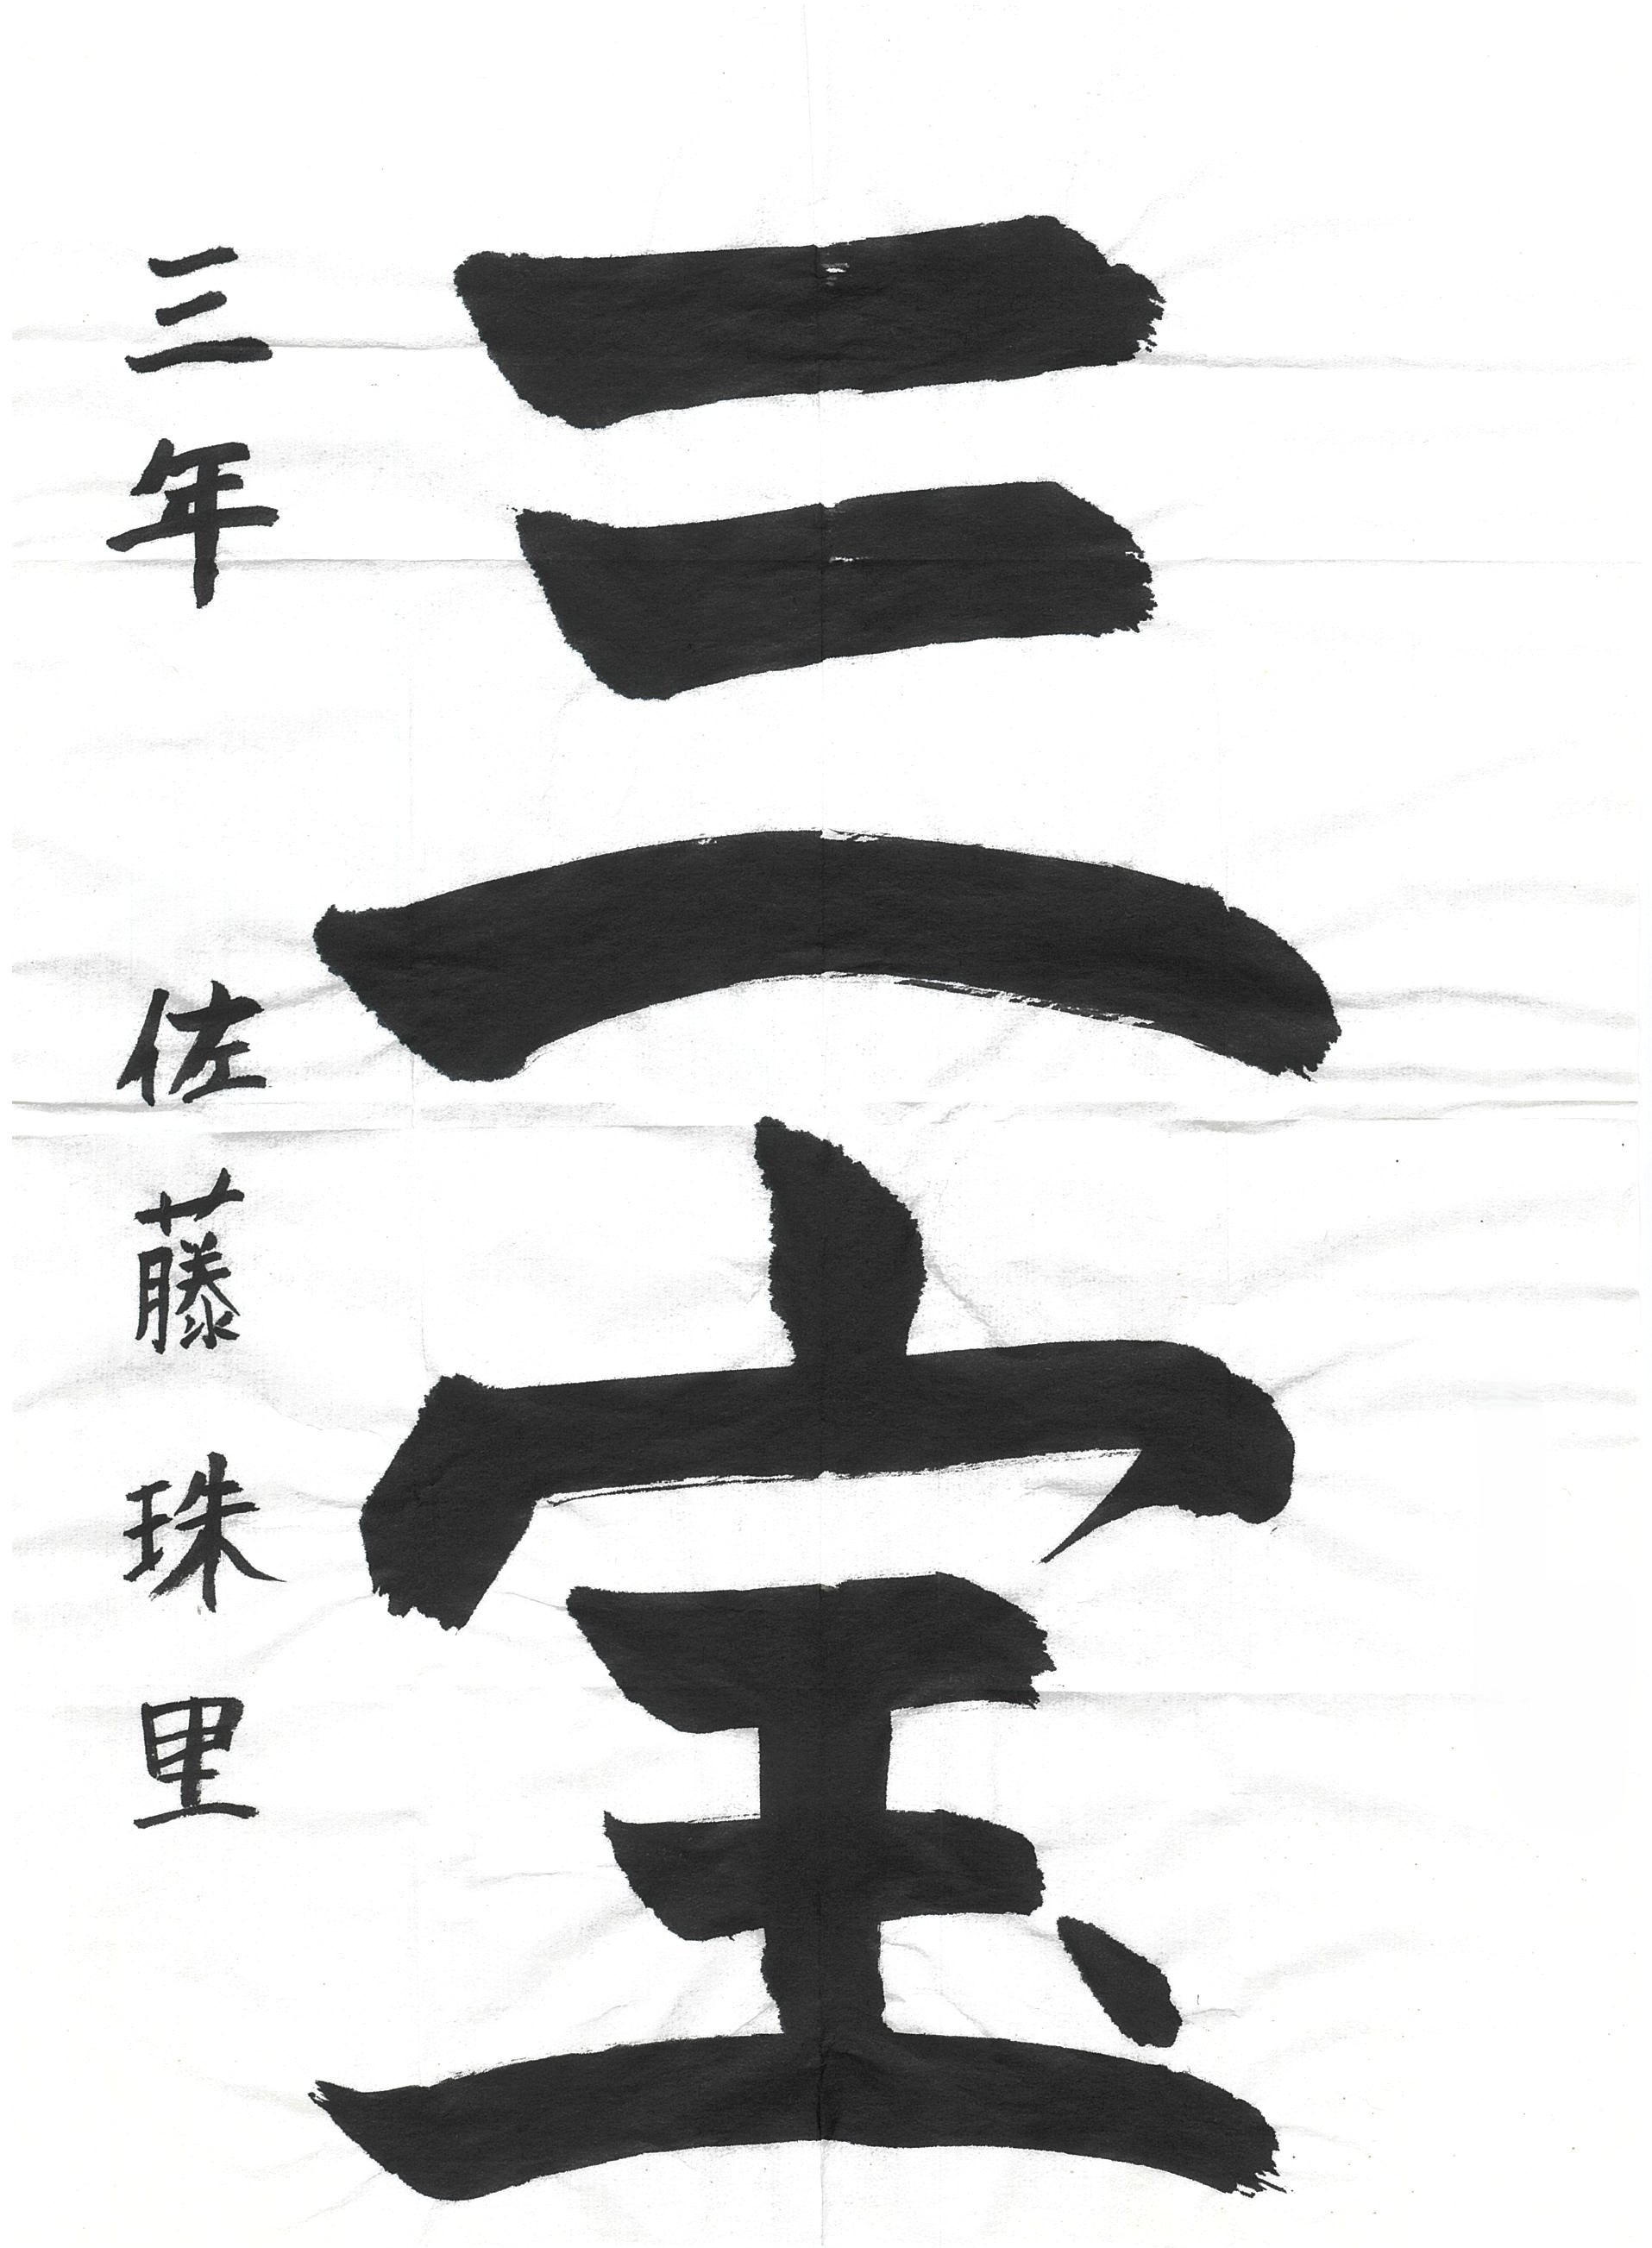 三宝
三年 佐藤珠里